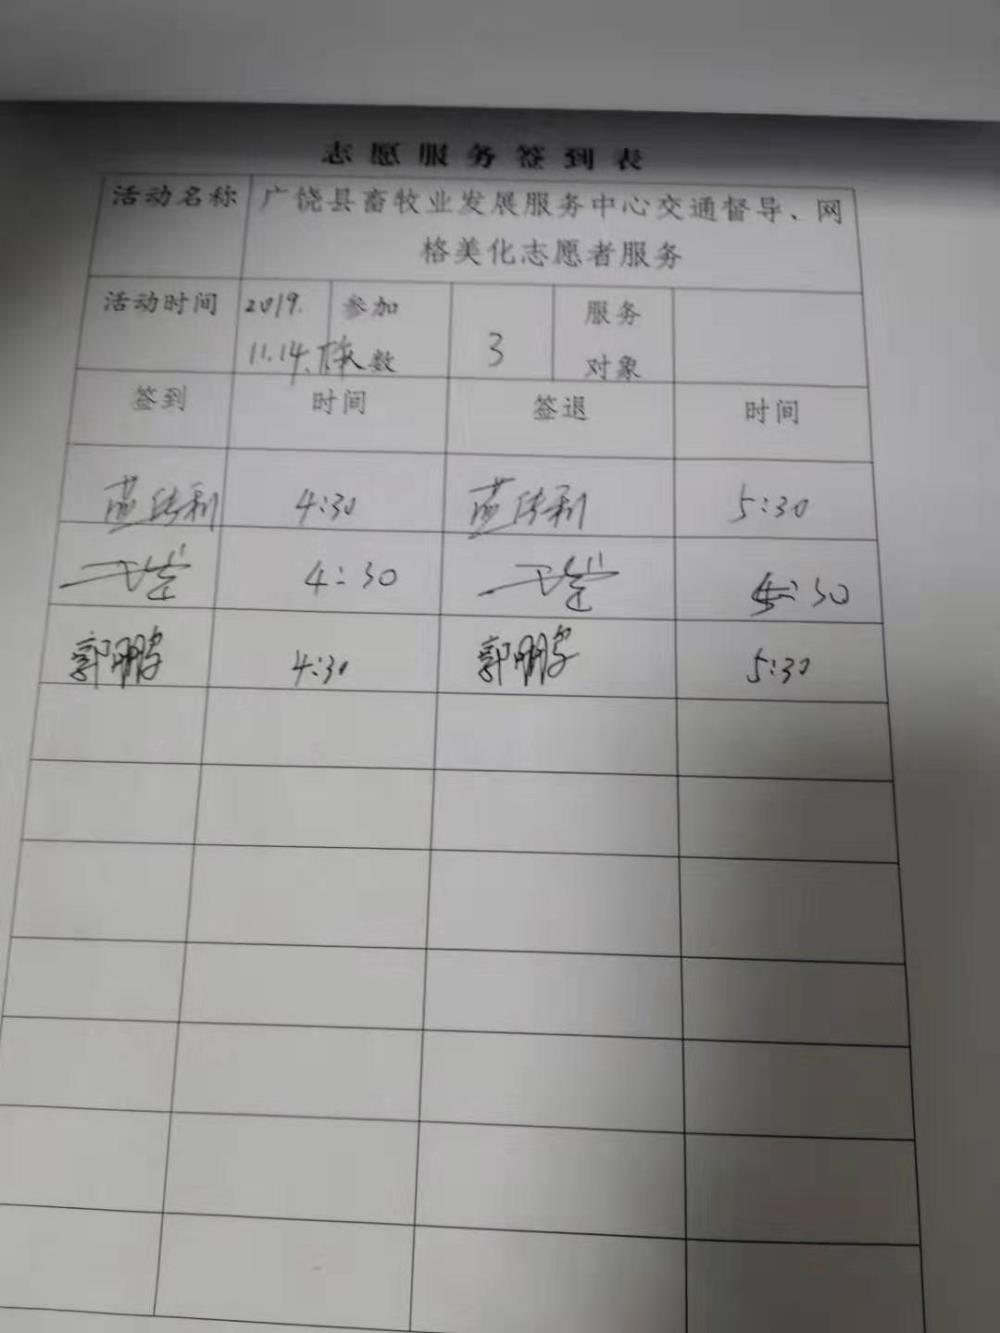 志愿服务签到表
活动名称 广饶县畜牧业发展服务中心交通督导、网
格美化志愿者服务
活动时间 2019. 参加 服务
11.14.下午 人数 3 对象
签到 时间 签退 时间
4:30 5:30
4:30 5:30
郭鹏 4:30 郭鹏 5:30